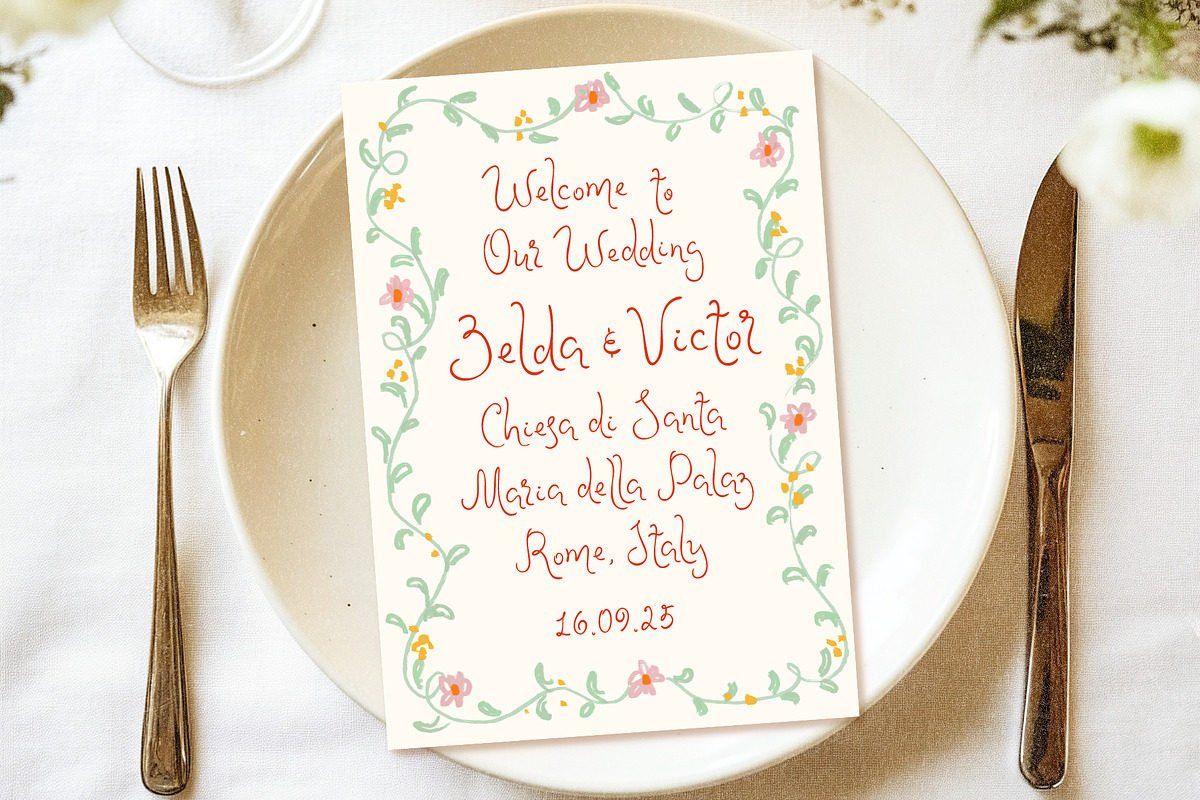 Welcome to
Our Wedding
Zelda & Victor
Chiesa di Santa
Maria della Palaz
Rome, Italy
16.09.25